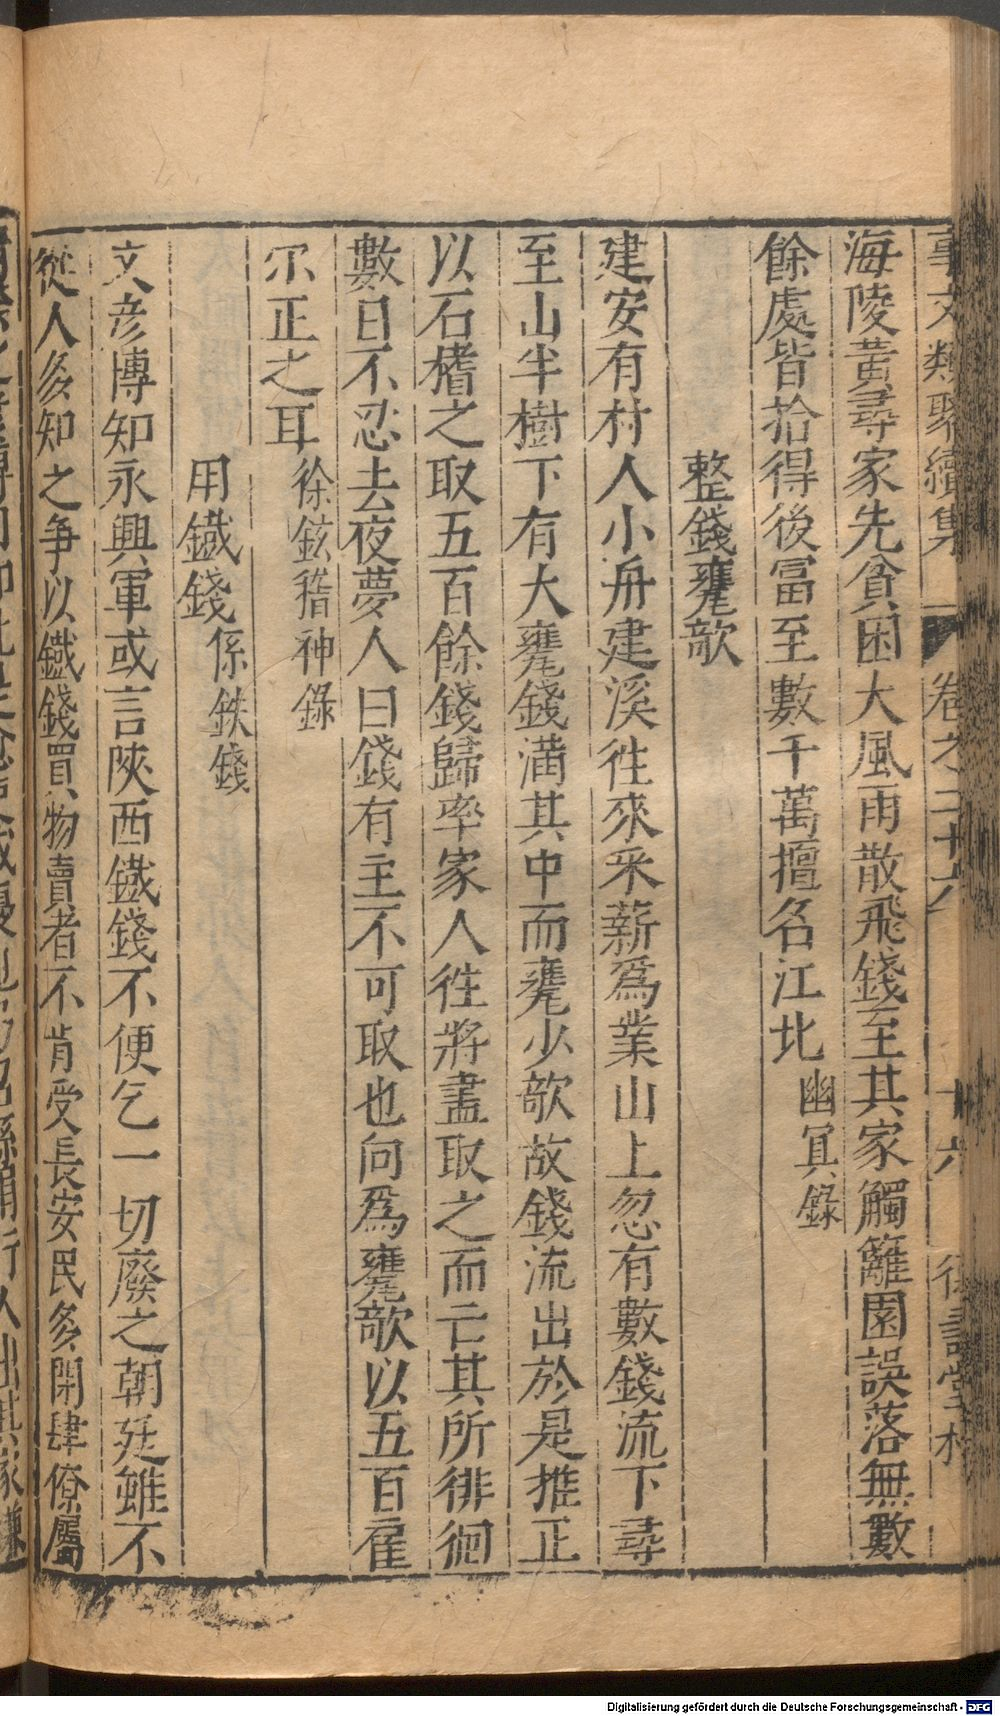 事文類聚續集 卷之二十六 十六
海陵黃尋家先貧困大風雨散飛錢至其家觸籬園誤落無數
餘處皆拾得後富至數千萬擅名江北幽冥錄
整錢甕欹
建安有村人小舟建溪徃來采薪爲業山上忽有數錢流下尋
至山半樹下有大甕錢滿其中而甕少欹故錢流出於是推正
以石榰之取五百餘錢歸率家人徃將盡取之而亡其所徘徊
數日不忍去夜夢人曰錢有主不可取也向爲甕欹以五百雇
尔正之耳徐鉉稽神錄
用鐵錢係鉄錢
文彦博知永興軍或言陝西鐵錢不便乞一切廢之朝廷雖不
從人多知之爭以鐵錢買物賣者不肯受長安民多閉肆僚屬
Digitalisierung gefördert durch die Deutsche Forschungsgemeinschaft - DFG